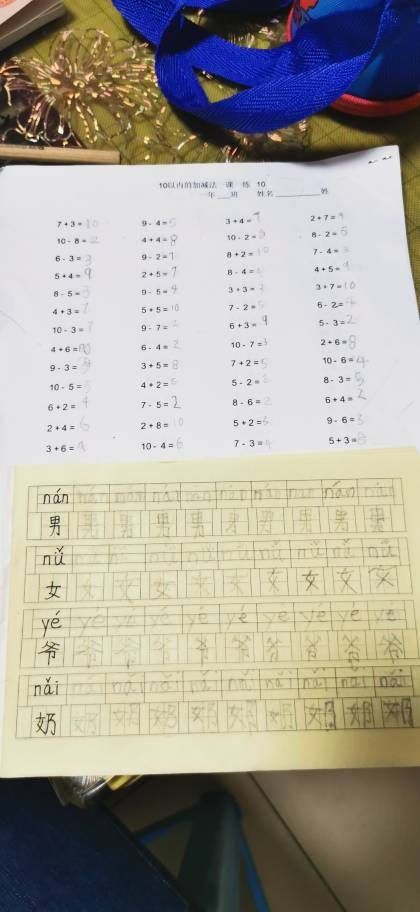 10以内的加减法一课一练 10
一年___班 姓名________姓
7 + 3 = 10 9 - 4 = 5 3 + 4 = 7 2 + 7 = 9
10 - 8 = 2 4 + 4 = 8 10 - 2 = 8 - 2 = 5
6 - 3 = 3 9 - 2 = 7 8 + 2 = 10 7 - 4 =
5 + 4 = 9 2 + 5 = 7 8 - 4 = 4 + 5 =
8 - 5 = 3 9 - 5 = 4 3 + 3 = 3 + 7 = 10
4 + 3 = 7 5 + 5 = 10 7 - 2 = 6 - 2 = 4
10 - 3 = 7 9 - 7 = 2 6 + 3 = 9 5 - 3 = 2
4 + 6 = 10 6 - 4 = 2 10 - 7 = 3 2 + 6 = 8
9 - 3 = 3 + 5 = 8 7 + 2 = 5 10 - 6 = 4
10 - 5 = 5 4 + 2 = 5 - 2 = 8 - 3 = 5
6 + 2 = 7 - 5 = 2 8 - 6 = 2 6 + 4 = 2
2 + 4 = 6 2 + 8 = 10 5 + 2 = 9 - 6 = 3
3 + 6 = 9 10 - 4 = 6 7 - 3 = 4 5 + 3 = 8
nán nán nán nán nán nán nán nán nán nán
男 男 男 男 男 男 男 男 男 男
nǚ nǚ nǚ nǚ nǚ nǚ nǚ nǚ nǚ nǚ
女 女 女 女 女 女 女 女 女 女
yé yé yé yé yé yé yé yé yé yé
爷 爷 爷 爷 爷 爷 爷 爷 爷 爷
nǎi nǎi nǎi nǎi nǎi nǎi nǎi nǎi nǎi nǎi
奶 奶 奶 奶 奶 奶 奶 奶 奶 奶